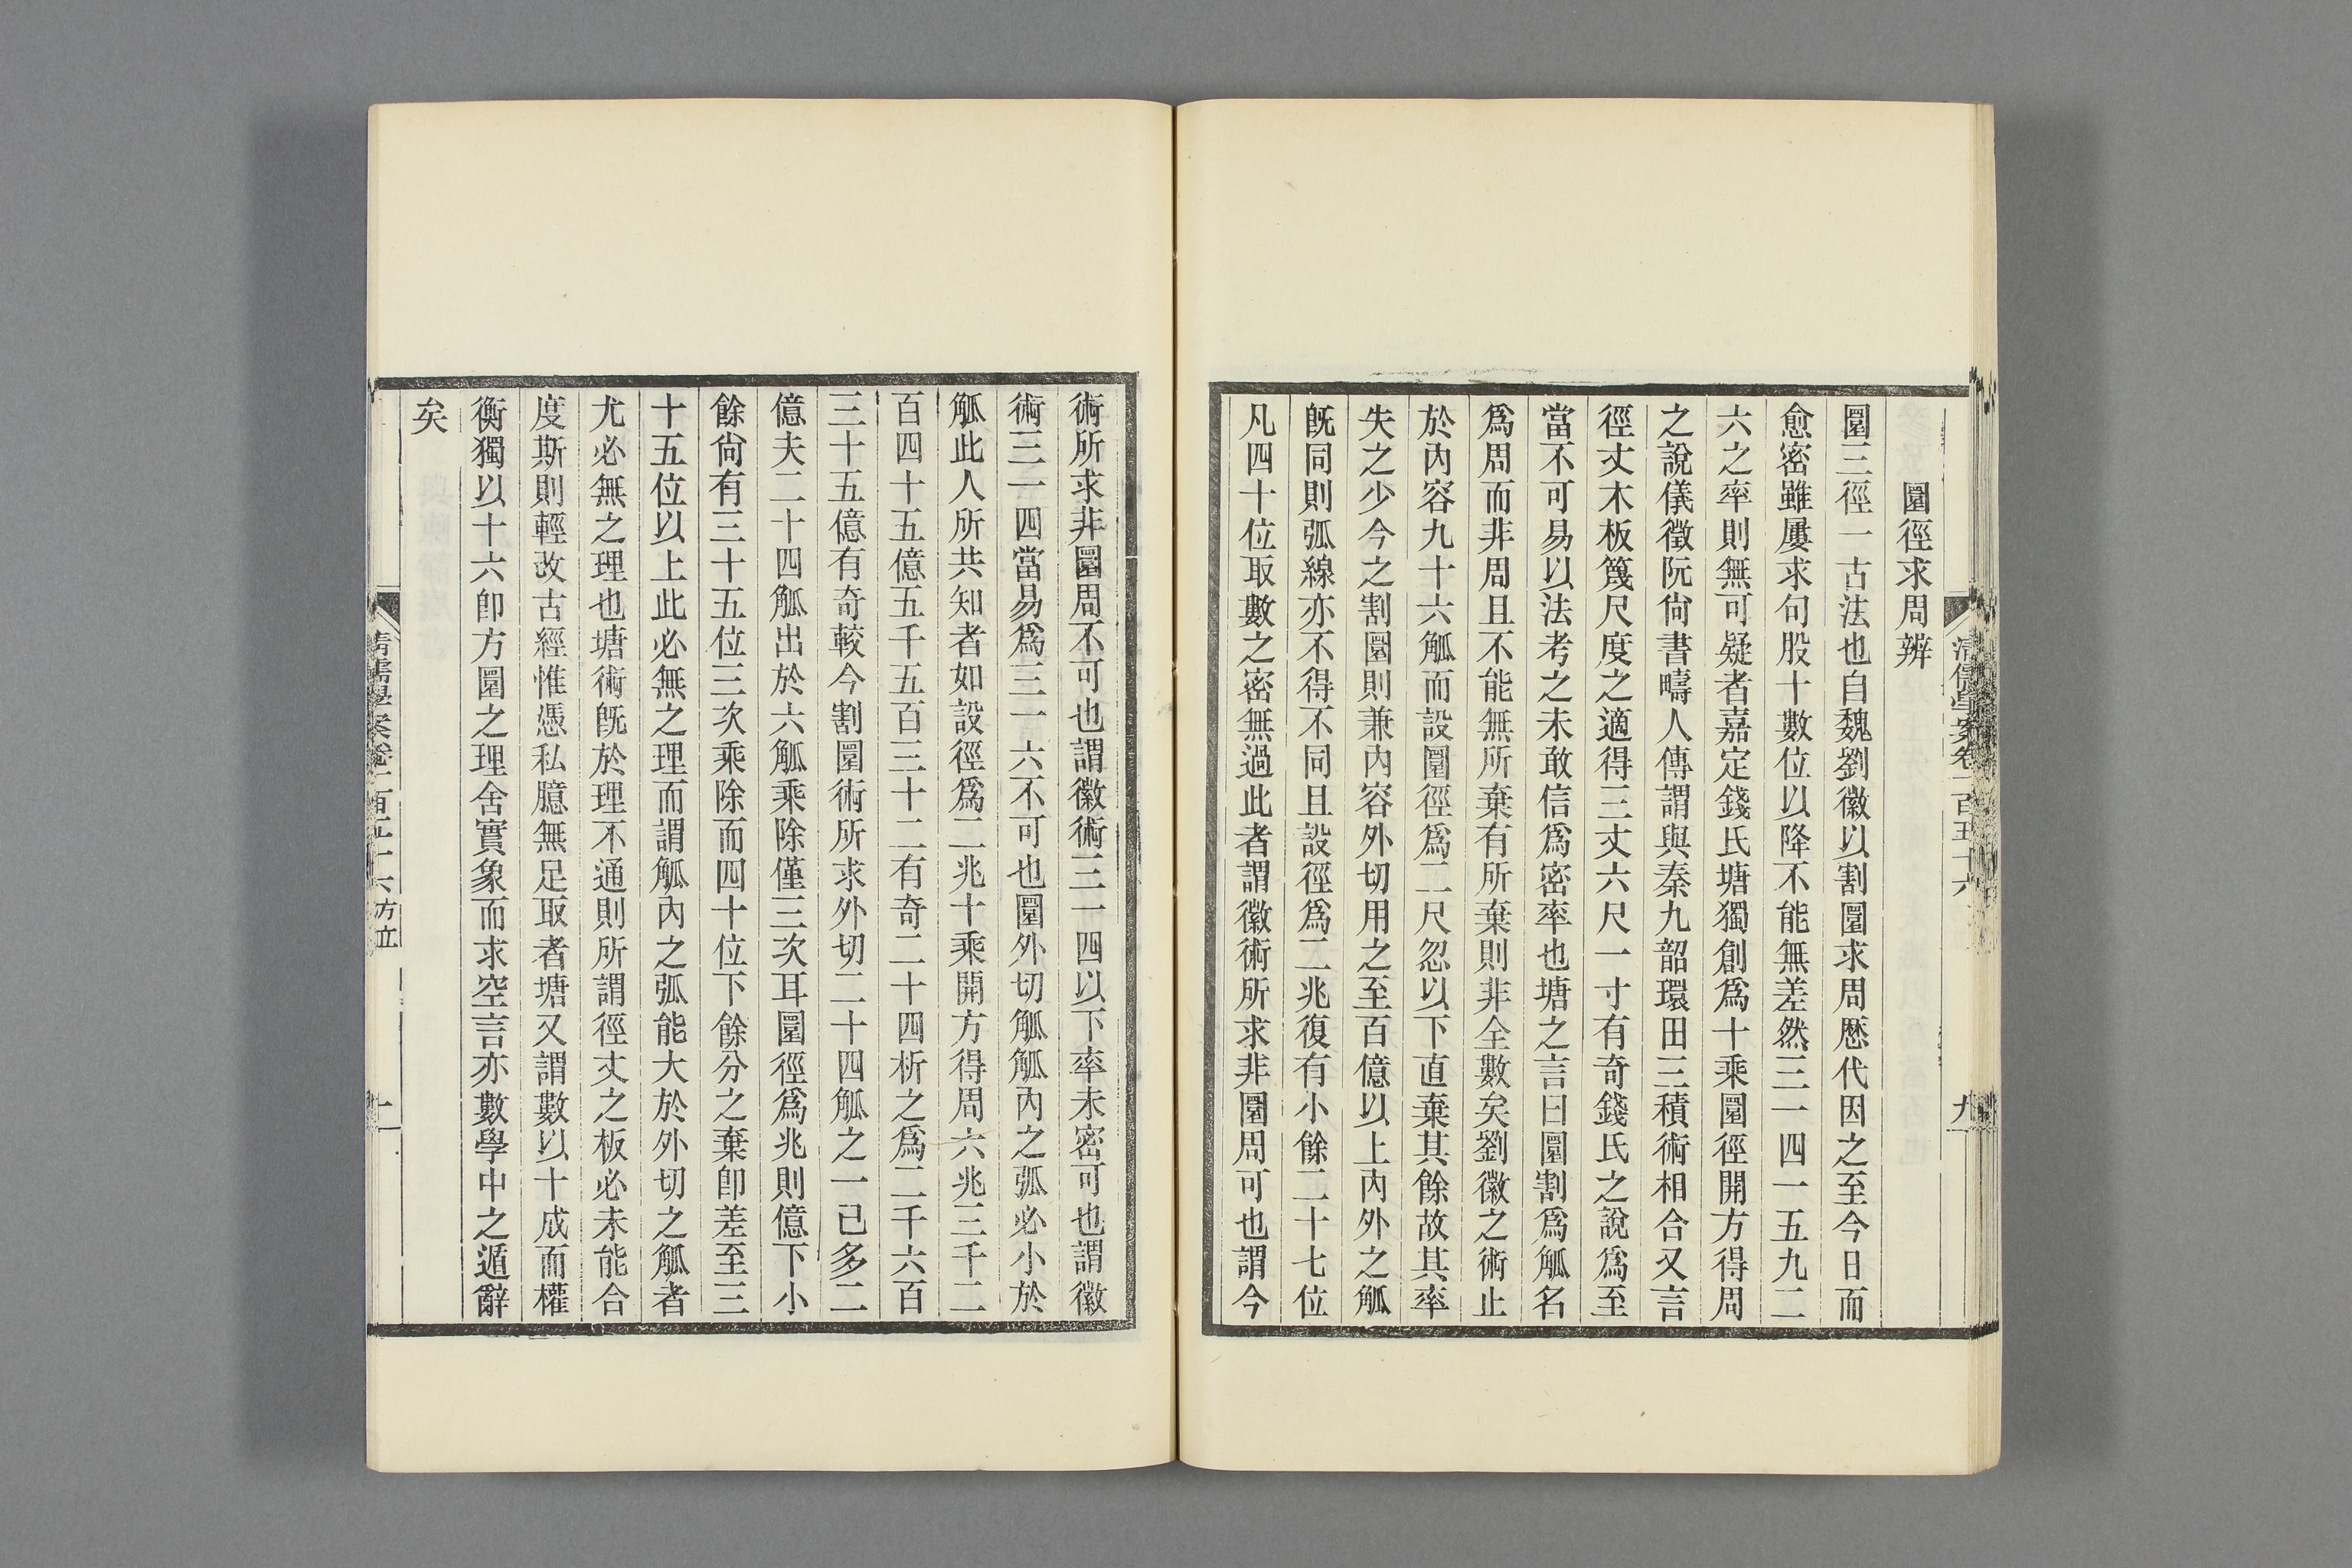 清儒學案卷一百五十六
九
圜徑求周辨
圜三徑一古法也自魏劉徽以割圜求周歷代因之至今日而
愈密雖屢求句股十數位以降不能無差然三一四一五九二
六之率則無可疑者嘉定錢氏塘獨創爲十乘圜徑開方得周
之說儀徵阮尙書疇人傳謂與秦九韶環田三積術相合又言
徑丈木板篾尺度之適得三丈六尺一寸有奇錢氏之說爲至
當不可易以法考之未敢信爲密率也塘之言曰圜割爲觚名
爲周而非周且不能無所棄有所棄則非全數矣劉徽之術止
於內容九十六觚而設圜徑爲二尺忽以下直棄其餘故其率
失之少今之割圜則兼內容外切用之至百億以上內外之觚
旣同則弧線亦不得不同且設徑爲二兆復有小餘二十七位
凡四十位取數之密無過此者謂徽術所求非圜周可也謂今
術所求非圜周不可也謂徽術三一四以下率未密可也謂徽
術三一四當易爲三一六不可也圜外切觚觚內之弧必小於
觚此人所共知者如設徑爲二兆十乘開方得周六兆三千二
百四十五億五千五百三十二有奇二十四析之爲二千六百
三十五億有奇較今割圜術所求外切二十四觚之一已多二
億夫二十四觚出於六觚乘除僅三次耳圜徑爲兆則億下小
餘尙有三十五位三次乘除而四十位下餘分之棄卽差至三
十五位以上此必無之理而謂觚內之弧能大於外切之觚者
尤必無之理也塘術旣於理不通則所謂徑丈之板必未能合
度斯則輕改古經惟憑私臆無足取者塘又謂數以十成而權
衡獨以十六卽方圜之理舍實象而求空言亦數學中之遁辭
矣
清儒學案卷一百五十六 方立